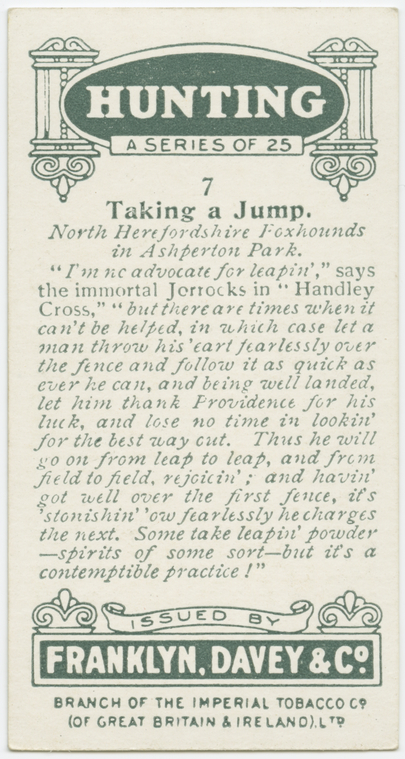 HUNTING
A SERIES OF 25
7
Taking a Jump.
North Herefordshire Foxhounds
in Ashperton Park.
"I'm no advocate for leapin'," says
the immortal Jorrocks in "Handley
Cross," "but there are times when it
can't be helped, in which case let a
man throw his 'eart fearlessly over
the fence and follow it as quick as
ever he can, and being well landed,
let him thank Providence for his
luck, and lose no time in lookin'
for the best way out. Thus he will
go on from leap to leap, and from
field to field, rejoicin'; and havin'
got well over the first fence, it's
'stonishin' 'ow fearlessly he charges
the next. Some take leapin' powder
—spirits of some sort—but it's a
contemptible practice!"
ISSUED BY
FRANKLYN, DAVEY & Co.
BRANCH OF THE IMPERIAL TOBACCO Co
(OF GREAT BRITAIN & IRELAND), LTD